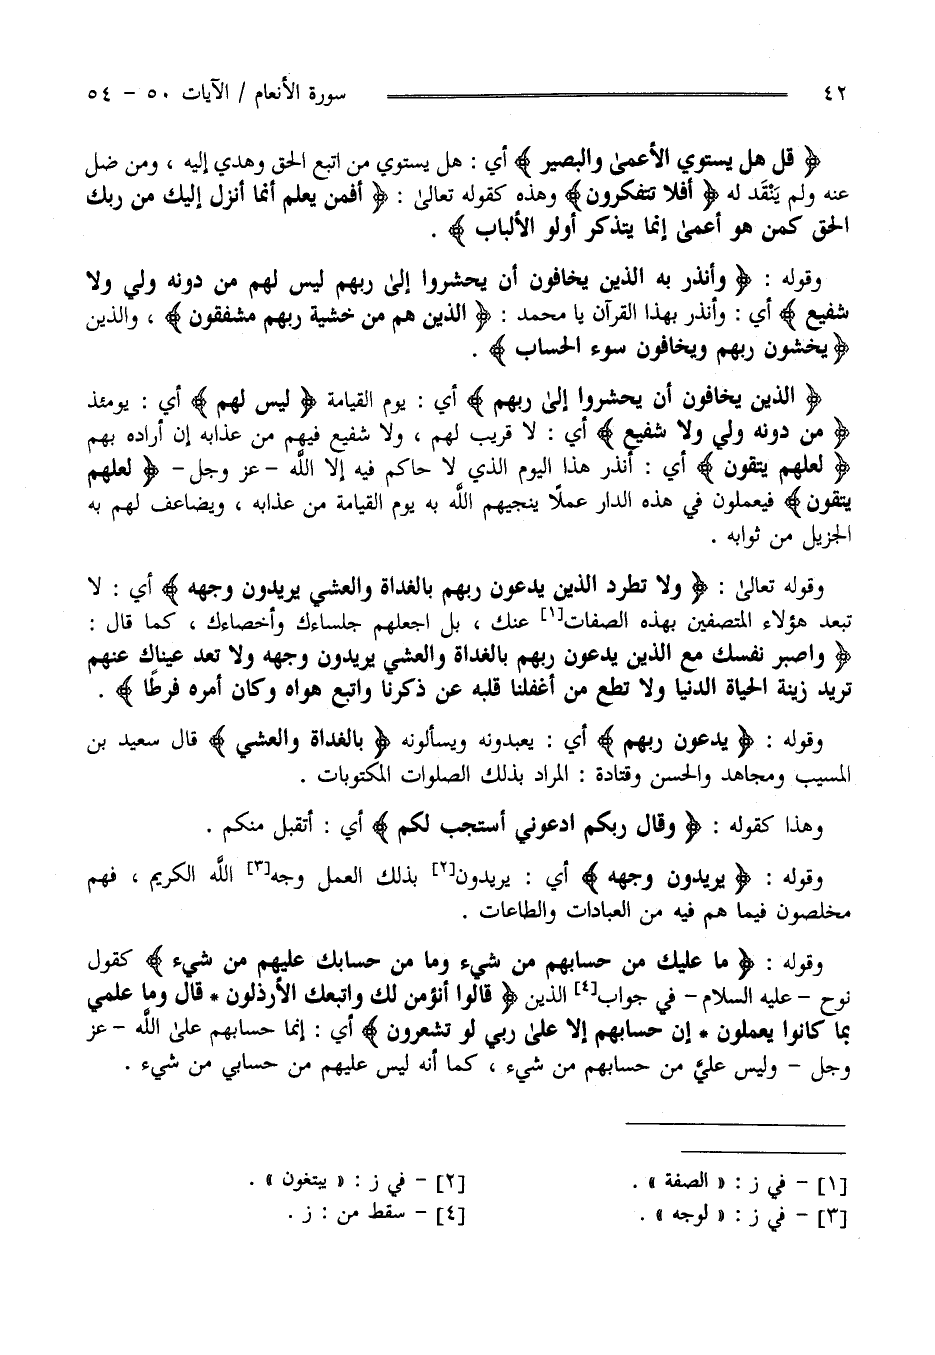 ٤٢ سورة الأنعام / الآيات ٥٠ - ٥٤
﴿ قل هل يستوي الأعمىٰ والبصير ﴾ أي : هل يستوي من اتبع الحق وهدي إليه ، ومن ضل
عنه ولم يَنْقَد له ﴿ أفلا تتفكرون ﴾ وهذه كقوله تعالىٰ : ﴿ أفمن يعلم أنما أنزل إليك من ربك
الحق كمن هو أعمىٰ إنما يتذكر أولو الألباب ﴾ .
وقوله : ﴿ وأنذر به الذين يخافون أن يحشروا إلىٰ ربهم ليس لهم من دونه ولي ولا
شفيع ﴾ أي : وأنذر بهذا القرآن يا محمد : ﴿ الذين هم من خشية ربهم مشفقون ﴾ ، والذين
﴿ يخشون ربهم ويخافون سوء الحساب ﴾ .
﴿ الذين يخافون أن يحشروا إلىٰ ربهم ﴾ أي : يوم القيامة ﴿ ليس لهم ﴾ أي : يومئذ
﴿ من دونه ولي ولا شفيع ﴾ أي : لا قريب لهم ، ولا شفيع فيهم من عذابه إن أراده بهم
﴿ لعلهم يتقون ﴾ أي : أنذر هذا اليوم الذي لا حاكم فيه إلا اللَّه -عز وجل- ﴿ لعلهم
يتقون ﴾ فيعملون في هذه الدار عملًا ينجيهم اللَّه به يوم القيامة من عذابه ، ويضاعف لهم به
الجزيل من ثوابه .
وقوله تعالىٰ : ﴿ ولا تطرد الذين يدعون ربهم بالغداة والعشي يريدون وجهه ﴾ أي : لا
تبعد هؤلاء المتصفين بهذه الصفات[١] عنك ، بل اجعلهم جلساءك وأخصاءك ، كما قال :
﴿ واصبر نفسك مع الذين يدعون ربهم بالغداة والعشي يريدون وجهه ولا تعد عيناك عنهم
تريد زينة الحياة الدنيا ولا تطع من أغفلنا قلبه عن ذكرنا واتبع هواه وكان أمره فرطًا ﴾ .
وقوله : ﴿ يدعون ربهم ﴾ أي : يعبدونه ويسألونه ﴿ بالغداة والعشي ﴾ قال سعيد بن
المسيب ومجاهد والحسن وقتادة : المراد بذلك الصلوات المكتوبات .
وهذا كقوله : ﴿ وقال ربكم ادعوني أستجب لكم ﴾ أي : أتقبل منكم .
وقوله : ﴿ يريدون وجهه ﴾ أي : يريدون[٢] بذلك العمل وجه[٣] اللَّه الكريم ، فهم
مخلصون فيما هم فيه من العبادات والطاعات .
وقوله : ﴿ ما عليك من حسابهم من شيء وما من حسابك عليهم من شيء ﴾ كقول
نوح - عليه السلام - في جواب[٤] الذين ﴿ قالوا أنؤمن لك واتبعك الأرذلون * قال وما علمي
بما كانوا يعملون * إن حسابهم إلا علىٰ ربي لو تشعرون ﴾ أي : إنما حسابهم علىٰ اللَّه -عز
وجل - وليس عليَّ من حسابهم من شيء ، كما أنه ليس عليهم من حسابي من شيء .
[١] - في ز : « الصفة » . [٢] - في ز : « يبتغون » .
[٣] - في ز : « لوجه » . [٤] - سقط من : ز .